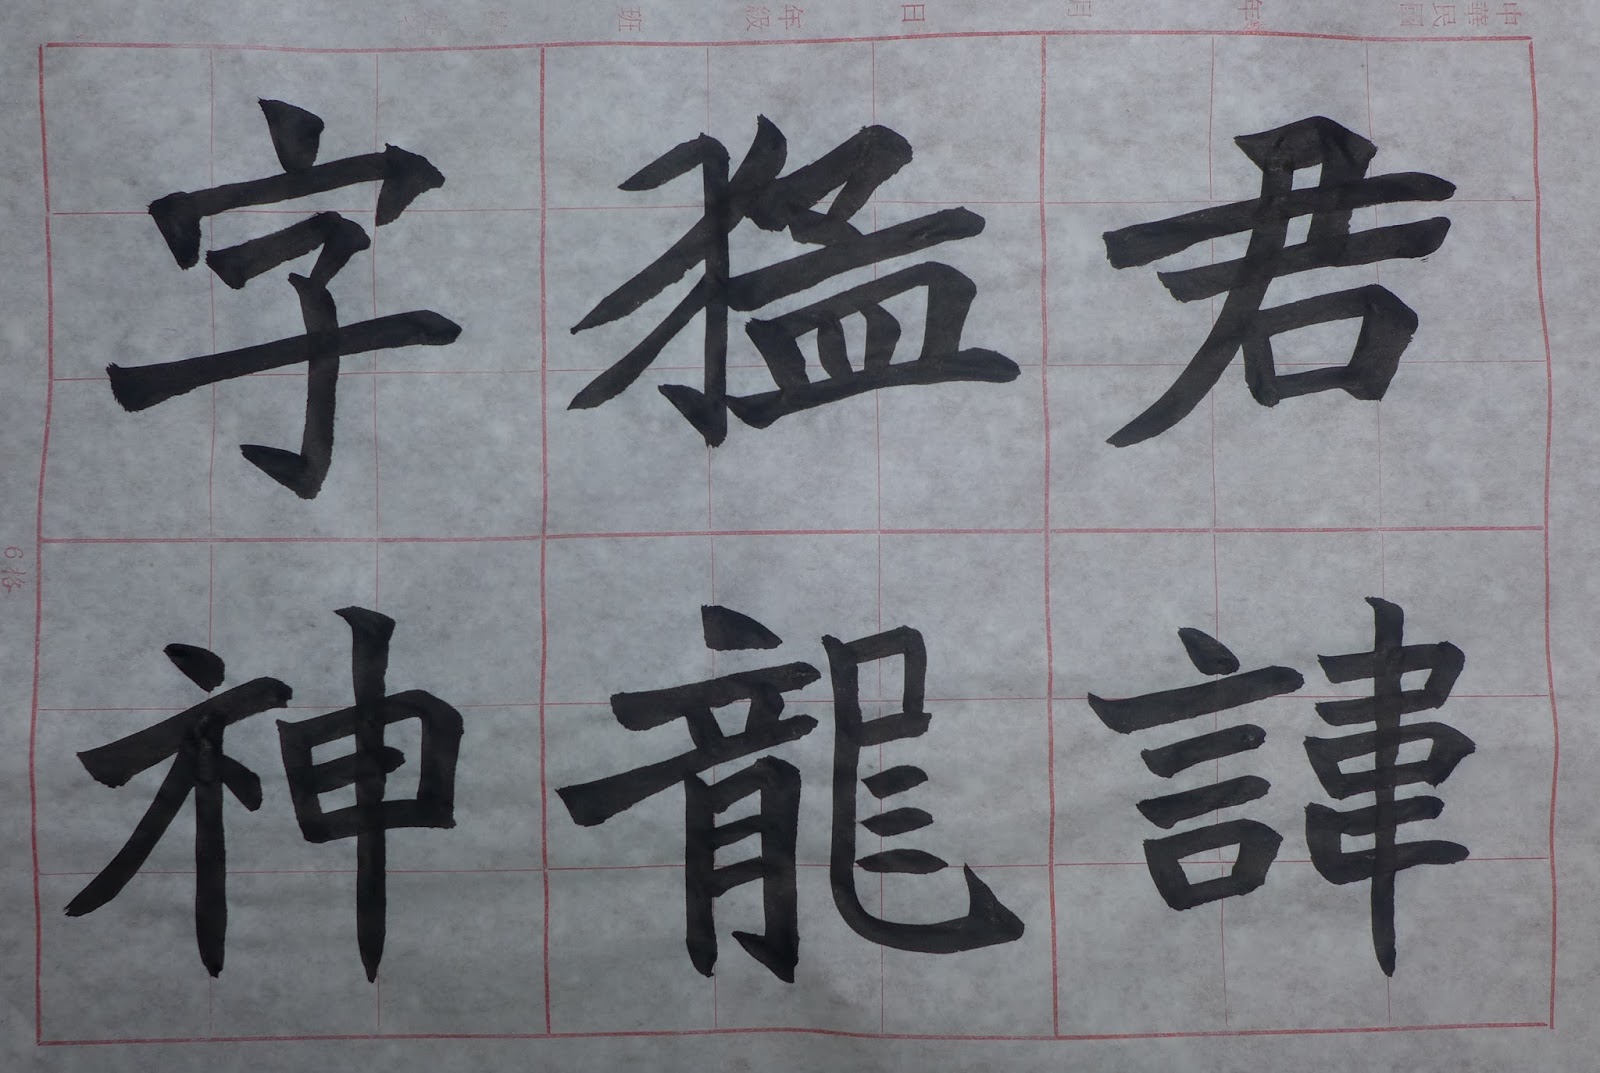 君諱
猛龍
字神
中華民國 年 月 日 年級 班
6格